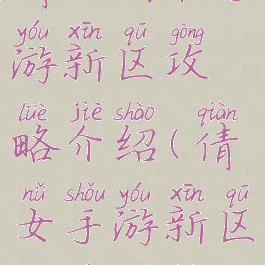 yóu xīn qū gōng
游新区攻
lüè jiè shào qiàn
略介绍(倩
nǚ shǒu yóu xīn qū
女手游新区